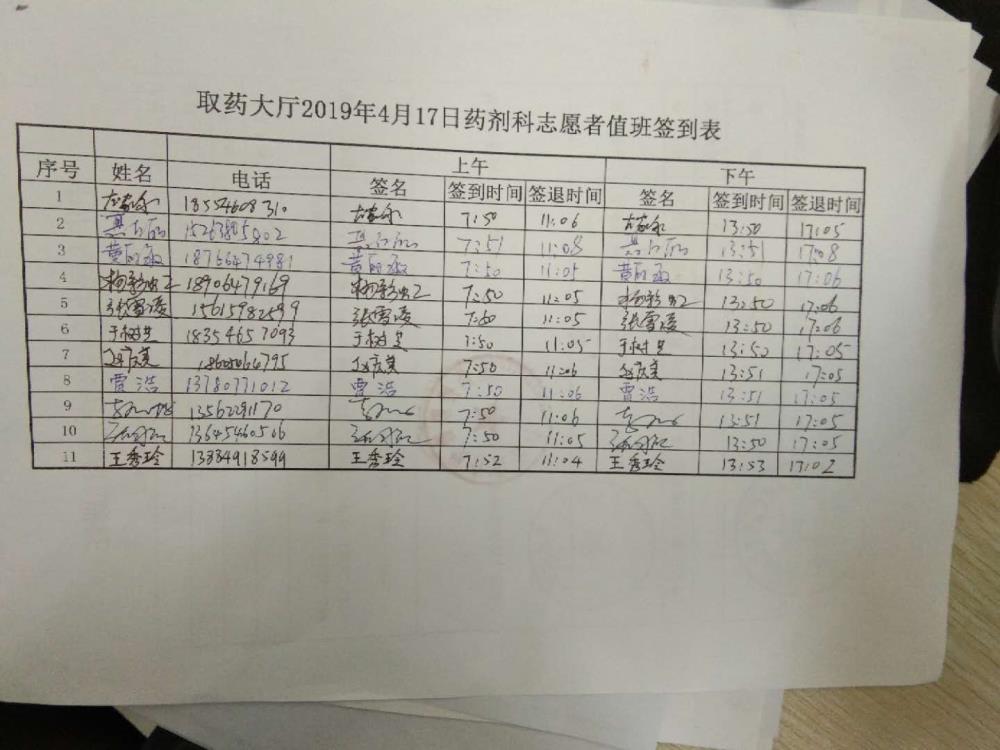 取药大厅2019年4月17日药剂科志愿者值班签到表
上午 下午
序号 姓名 电话 签名 签到时间 签退时间 签名 签到时间 签退时间
1 18554608310 7:50 11:06 13:50 17:05
2 15263895802 7:51 11:08 13:51 17:08
3 黄丽敏 18766474981 黄丽敏 7:50 11:05 黄丽敏 13:50 17:06
4 杨彩虹 18906479169 杨彩虹 7:50 11:05 杨彩虹 13:50 17:06
5 张雪凌 15615982599 张雪凌 7:50 11:05 张雪凌 13:50 17:06
6 于树 18354657093 于树 7:50 11:05 于树 13:50 17:05
7 18605064795 7:50 11:06 13:51 17:05
8 贾浩 13780771012 贾浩 7:50 11:06 贾浩 13:51 17:05
9 13562291170 7:50 11:06 13:51 17:05
10 13645460506 7:50 11:05 13:50 17:05
11 王秀玲 13884918599 王秀玲 7:52 11:04 王秀玲 13:53 17:02